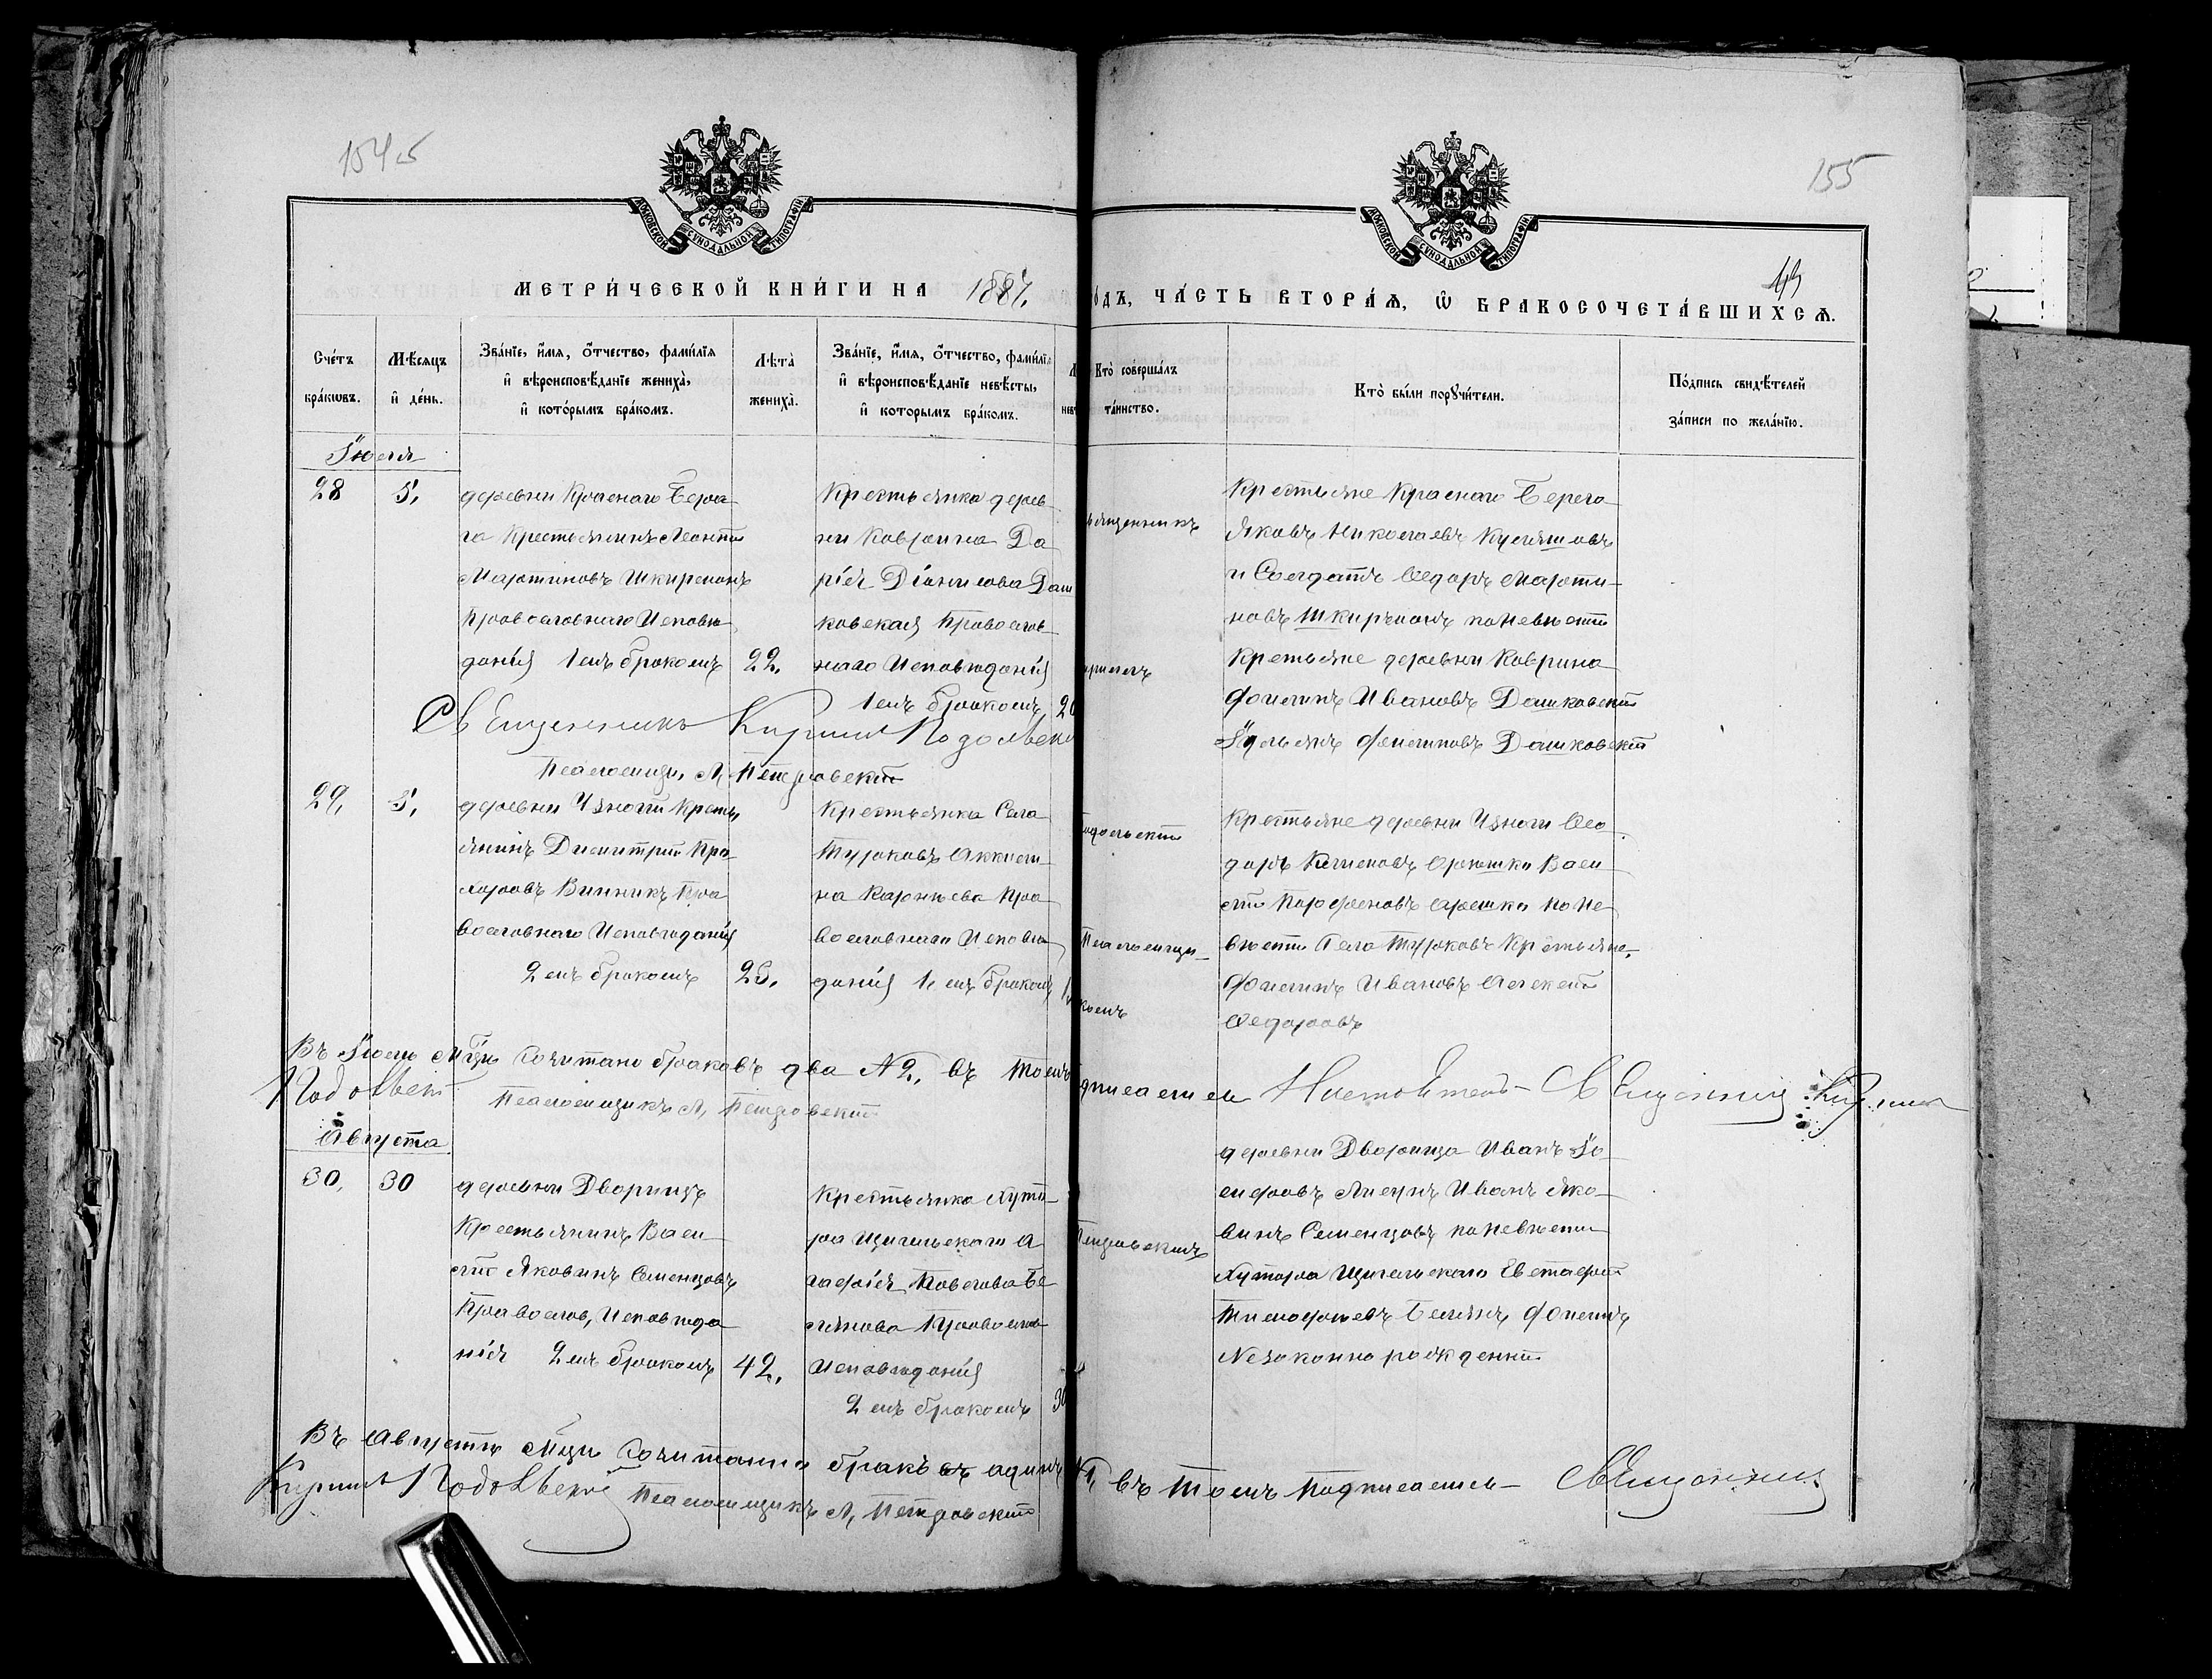 154 об
155
МОСКОВСКОЙ СѴНОДАЛЬНОЙ ТИПОГРАФІИ
МОСКОВСКОЙ СѴНОДАЛЬНОЙ ТИПОГРАФІИ
МЕТРИ́ЧЕСКОЙ КНИ́ГИ НА 1887.
ОДЪ, ЧА́СТЬ ВТОРА́Ѧ, Ѽ БРАКОСОЧЕТА́ВШИХСѦ.
Сче́тъ бра́кѡвъ.
Мѣ́сяцъ и҆ де́нь.
Зва́нїе, и҆́мѧ, ѻ҆́тчество, фами́лїѧ
и҆ вѣроисповѣ́данїе жениха̀,
и҆ кото́рымъ бра́комъ.
Лѣта̀ жениха̀.
Зва́нїе, и҆́мѧ, ѻ҆́тчество, фами́лїѧ
и҆ вѣроисповѣ́данїе невѣ́сты,
и҆ которымъ бра́комъ.
Кто̀ соверша́лъ
та́инство.
Кто̀ бы́ли порꙋчи́тели.
По́дпись свидѣ́телей
за́писи по жела́нїю.
Іюля
28 5.
деревни Краснаго Бере
га Крестьянинъ Леонтій
Мартиновъ Шкирманъ
Православнаго Исповѣ
данія 1емъ бракомъ 22.
Крестьянка дерев
ни Коврина Да
рія Діонисова Даш
ковская Православ
наго Исповѣданія
1емъ бракомъ 20
Священникъ Кирилъ Подольскі
Псаломщи. Л. Петровскій
Крестьяне Краснаго Берега
Яковъ Николаевъ Кулешовъ
и Солдатъ Ѳедоръ Марти-
новъ Шкирманъ по Невѣстѣ
Крестьяне деревни Коврина
Филипъ Ивановъ Дашковскій
Юльянъ Филиповъ Дашковскій
29. 5.
деревни Изноги Кресть
янинъ Димитрій Про
хоровъ Винникъ Пра
вославнаго Исповѣданія
2емъ бракомъ 25.
Крестьянка Села
Турковъ Аккили
на Карнѣева Пра
вославнаго Исповѣ
данія 1емъ бракомъ
Подольскій
Псаломщи-
комъ
Крестьяне деревни Изноги Ѳео
доръ Климовъ Орешки Васи
лій Парфеновъ Орешки по Не
вѣстѣ Села Турковъ Крестьяне
Филипъ Ивановъ Алексѣй
Ѳедоровъ
Въ Іюлѣ Мцѣ Сочитано браковъ два №2. въ томъ
дписались Настоятель Священникъ Кирилъ
Подольскій Псаломщикъ Л. Петровскій
Августа
30. 30
деревни Дворицъ
Крестьянинъ Васи
лій Яковинъ Семенцовъ
Православ. Исповѣда
нія 2емъ бракомъ 42.
Крестьянка Хуто
ра Щигельскаго А
гафія Павлова Бе
лянова Православ
Исповѣданія
2емъ бракомъ 30
Петровскимъ
деревни Дворица Иванъ Іо
сифовъ Лисунъ Иванъ Яко
винъ Семенцовъ по Невѣстѣ
Хутора Щигельскаго Евстафій
Тимофѣевъ Белянъ Филипъ
Незаконнорожденній
Въ Августѣ Мцѣ Сочитанно бракъ одинъ №1, въ томъ подписались Священникъ
Кирилъ Подольскій Псаломщикъ Л. Петровскій